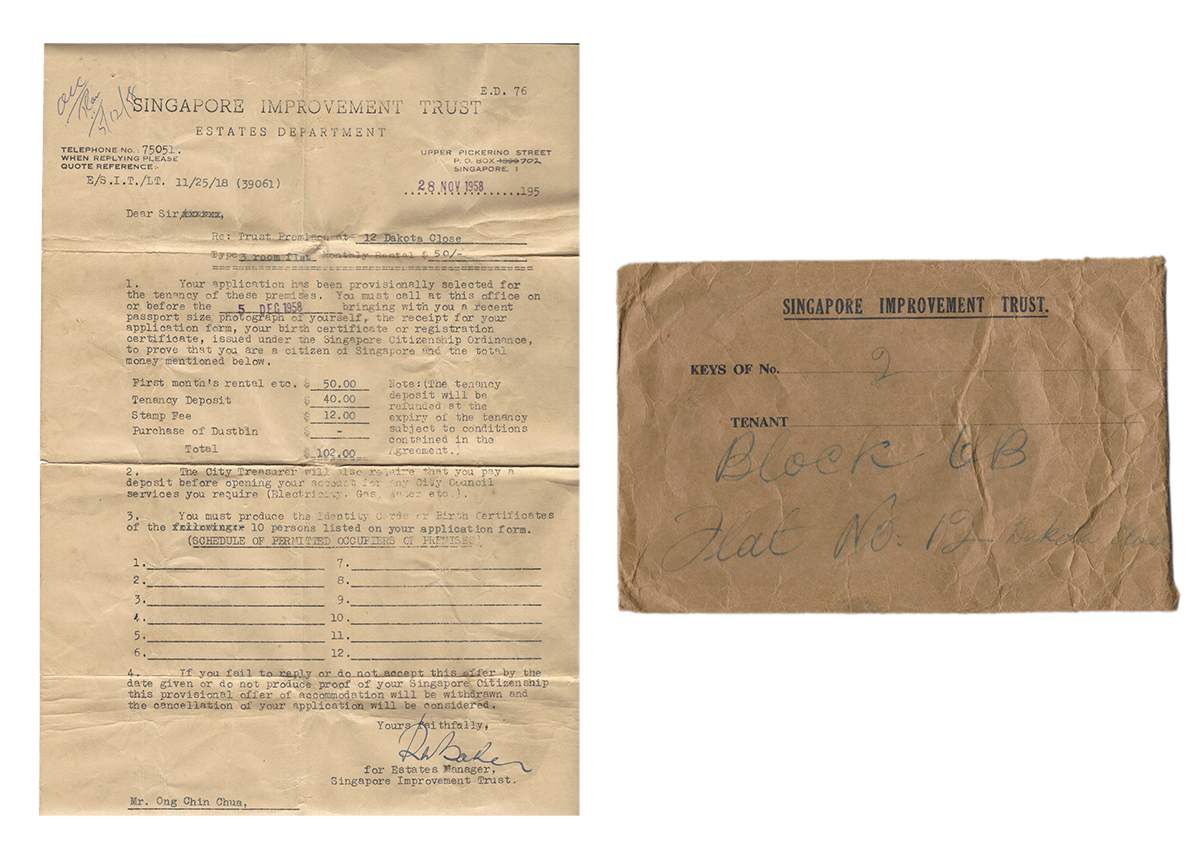 E.D. 76
SINGAPORE IMPROVEMENT TRUST
ESTATES DEPARTMENT
TELEPHONE No.: 75051.
WHEN REPLYING PLEASE
QUOTE REFERENCE:-
E/S.I.T./LT. 11/25/18 (39061)
UPPER PICKERING STREET
P. O. BOX 702,
SINGAPORE, 1
28 NOV 1958 195
Dear Sir,
Re: Trust Premises at 12 Dakota Close
Type 3 room flat Monthly Rental $ 50/-
1. Your application has been provisionally selected for
the tenancy of these premises. You must call at this office on
or before the 5 DEC 1958 bringing with you a recent
passport size photograph of yourself, the receipt for your
application form, your birth certificate or registration
certificate, issued under the Singapore Citizenship Ordinance,
to prove that you are a citizen of Singapore and the total
money mentioned below.
First month's rental etc. $ 50.00
Tenancy Deposit $ 40.00
Stamp Fee $ 12.00
Purchase of Dustbin $ -
Total $ 102.00
Note:(The tenancy
deposit will be
refunded at the
expiry of the tenancy
subject to conditions
contained in the
Agreement.)
2. The City Treasurer will also require that you pay a
deposit before opening your account for any City Council
services you require (Electricity, Gas, Water etc.).
3. You must produce the Identity Cards or Birth Certificates
of the following 10 persons listed on your application form.
(SCHEDULE OF PERMITTED OCCUPIERS OF PREMISES)
1. 7.
2. 8.
3. 9.
4. 10.
5. 11.
6. 12.
4. If you fail to reply or do not accept this offer by the
date given or do not produce proof of your Singapore Citizenship
this provisional offer of accommodation will be withdrawn and
the cancellation of your application will be considered.
Yours faithfully,
for Estates Manager,
Singapore Improvement Trust.
Mr. Ong Chin Chua,
SINGAPORE IMPROVEMENT TRUST.
KEYS OF No. 2
TENANT
Block 6B
Flat No. 12 Dakota Close